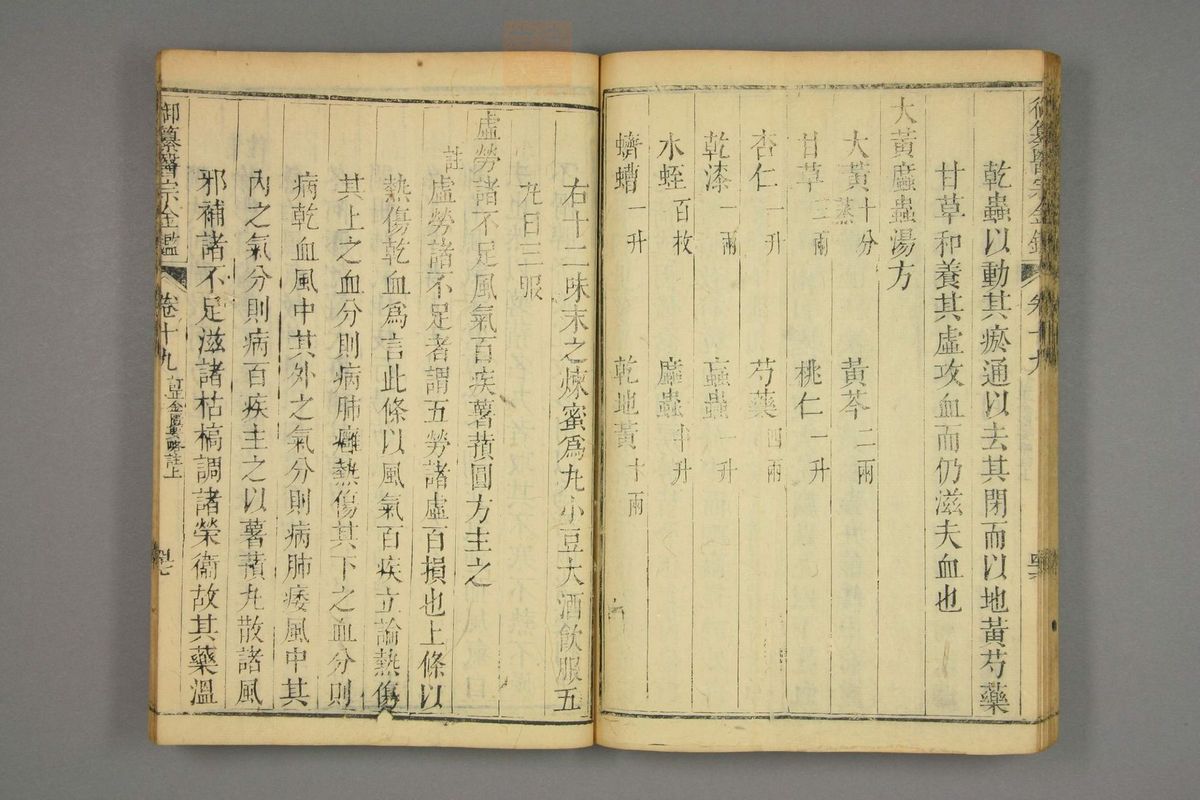 乾蟲以動其瘀通以去其閉而以地黃芍藥
甘草和養其虛攻血而仍滋夫血也
大黃䗪蟲湯方
大黃十分蒸 黃芩二兩
甘草三兩 桃仁一升
杏仁一升 芍藥四兩
乾漆一兩 蝱蟲一升
水蛭百枚 䗪蟲半升
蠐螬一升 乾地黃十兩
右十二味末之煉蜜為丸小豆大酒飲服五
丸日三服
虛勞諸不足風氣百疾薯蕷圓方主之
註
虛勞諸不足者謂五勞諸虛百損也上條以
熱傷乾血為言此條以風氣百疾立論熱傷
其上之血分則病肺癰熱傷其下之血分則
病乾血風中其外之氣分則病肺痿風中其
內之氣分則病百疾主之以薯蕷丸散諸風
邪補諸不足滋諸枯槁調諸榮衛故其藥溫
御纂醫宗金鑑 卷十九 訂正金匱要略註上